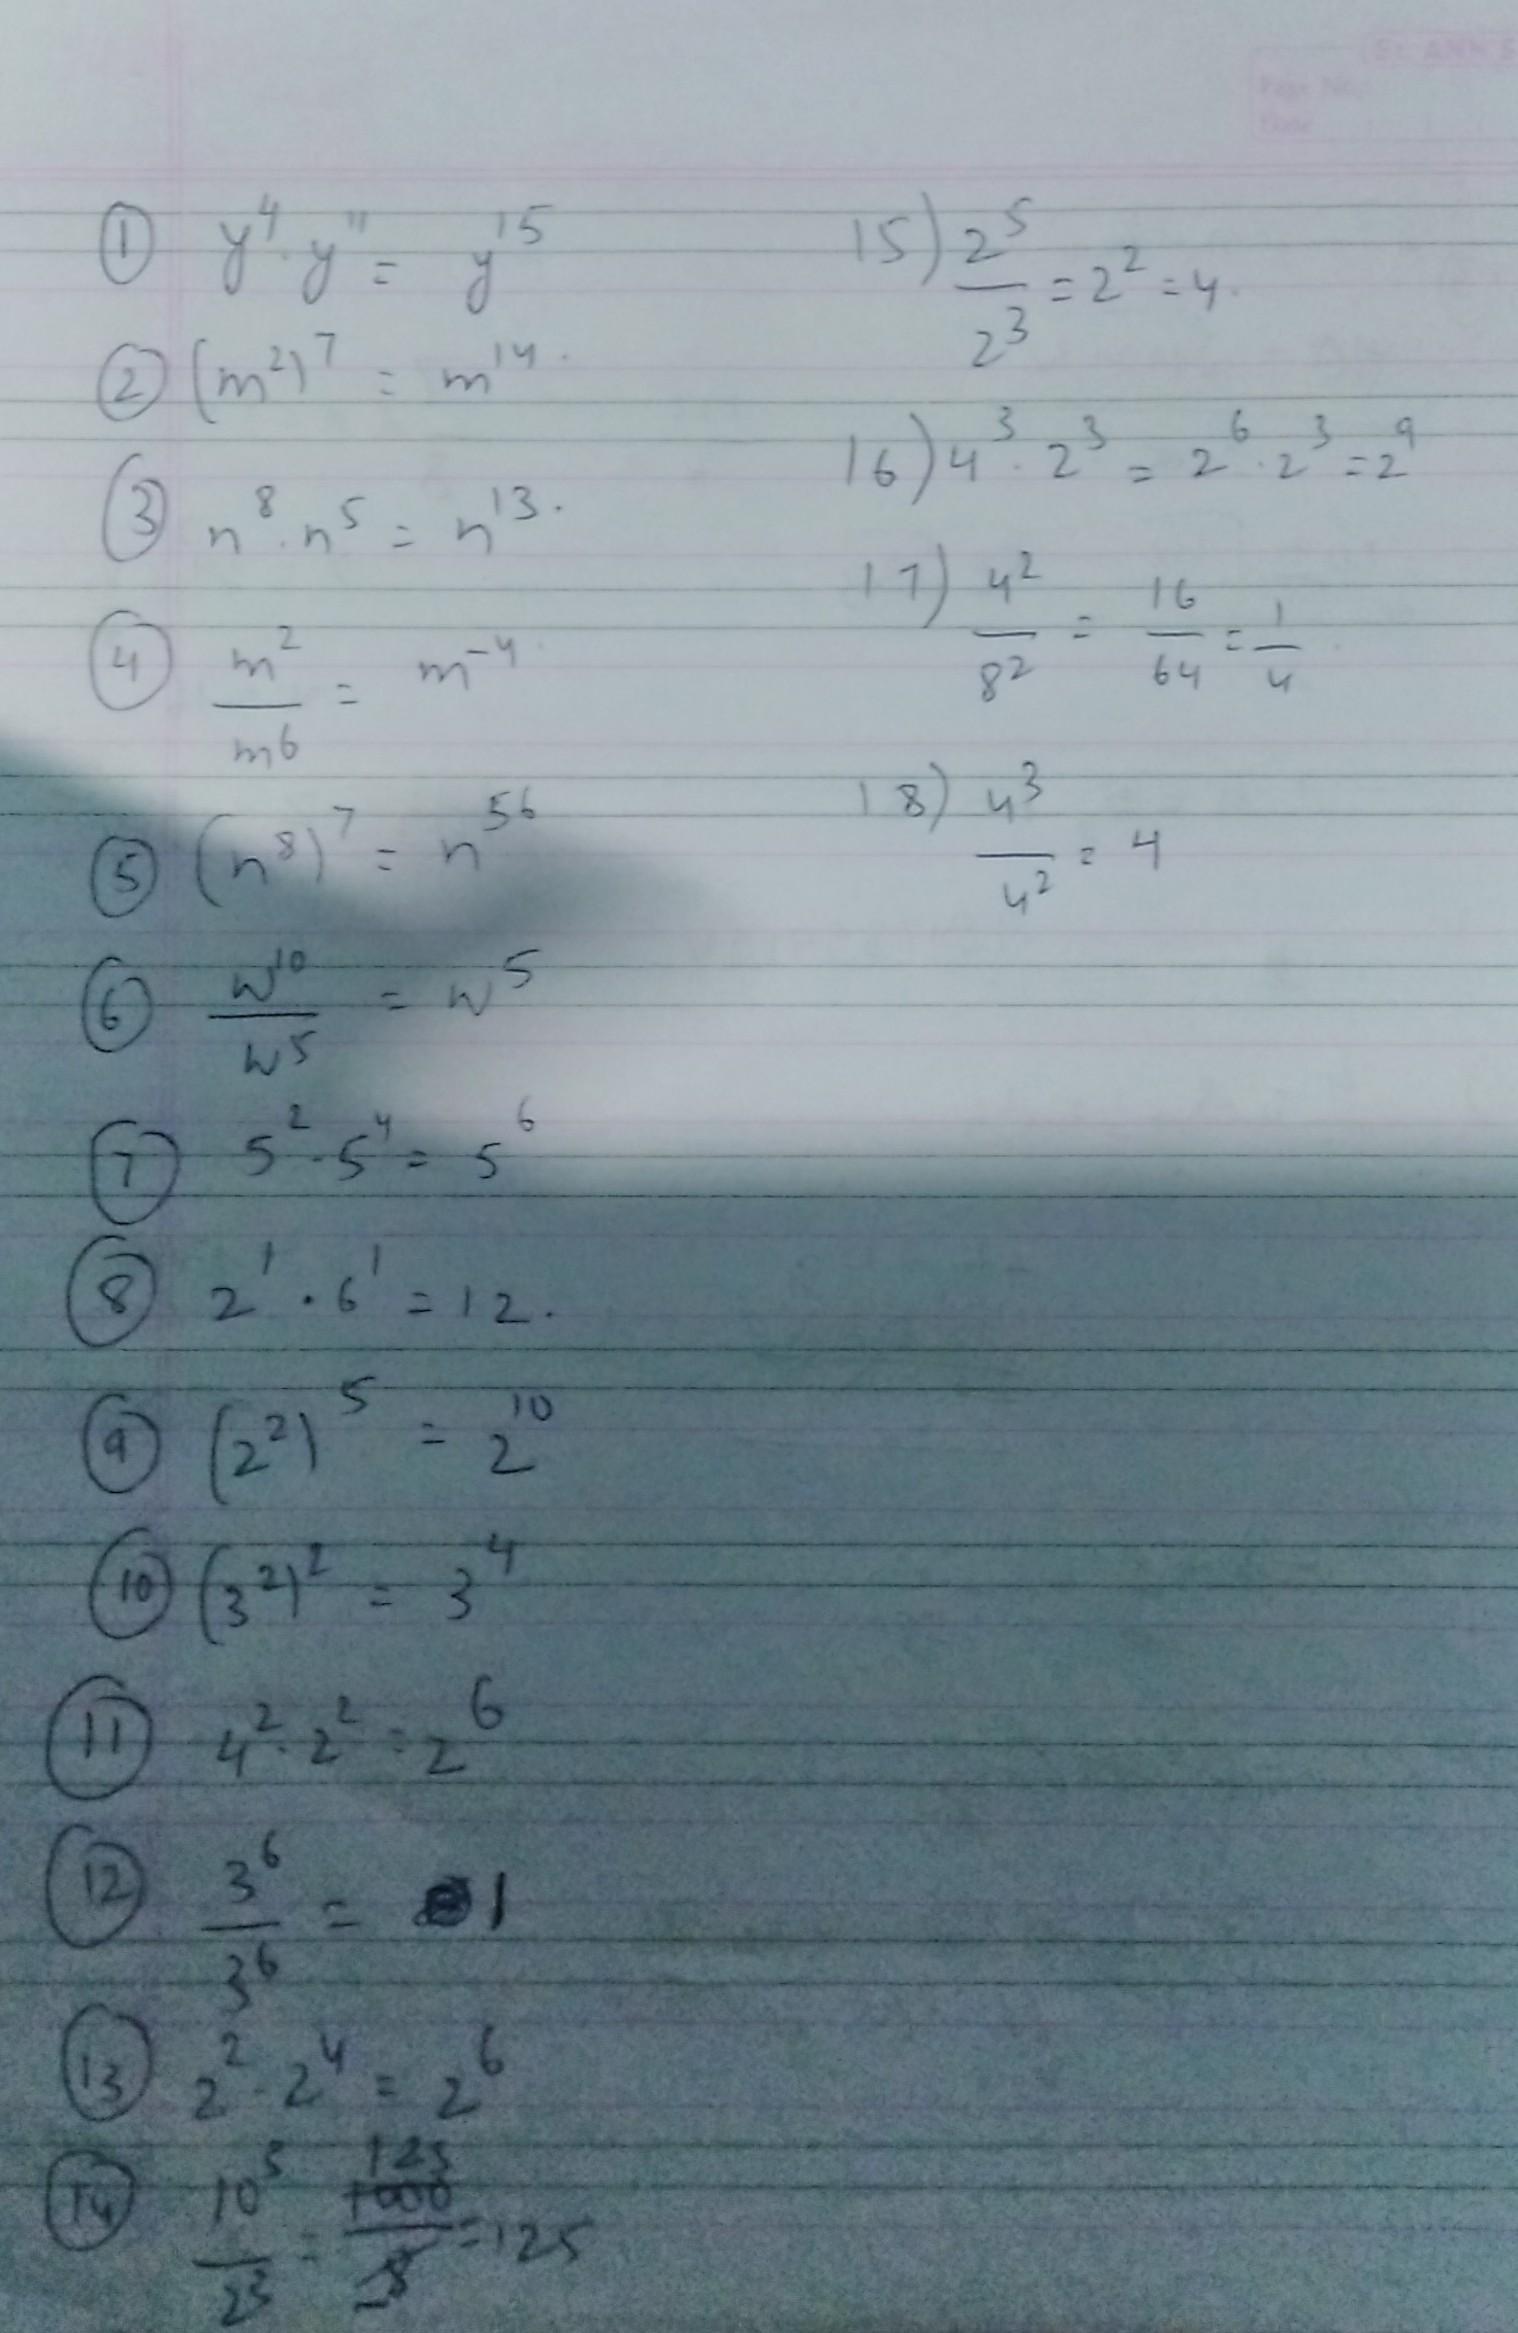 St. ANN S
Page No.
Date
① y⁴·y¹¹ = y¹⁵
② (m²)⁷ = m¹⁴.
③ n⁸.n⁵ = n¹³.
④ m²/m⁶ = m⁻⁴.
⑤ (n⁸)⁷ = n⁵⁶
⑥ w¹⁰/w⁵ = w⁵
⑦ 5².5⁴ = 5⁶
⑧ 2¹.6¹ = 12.
⑨ (2²)⁵ = 2¹⁰
⑩ (3²)² = 3⁴
⑪ 4².2² = 2⁶
⑫ 3⁶/3⁶ = 1
⑬ 2².2⁴ = 2⁶
125
⑭ 10³/2³ = 1000/8 = 125
15) 2⁵/2³ = 2² = 4.
16) 4³.2³ = 2⁶.2³ = 2⁹
17) 4²/8² = 16/64 = 1/4.
18) 4³/4² = 4